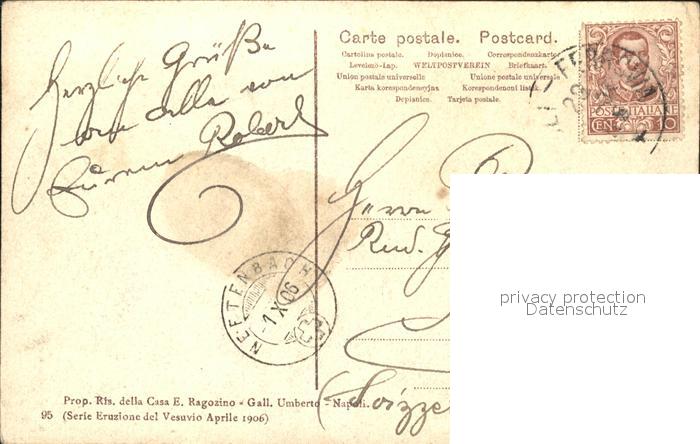 Carte postale. Postcard.
Cartolina postale. Dopisnice. Correspondenzkarte
Levelező-Lap. WELTPOSTVEREIN Briefkaart.
Union postale universelle Unione postale universale
Karta korrespondencyjna Korespondenci listek.
Dopisnice. Tarjeta postale.
POSTE ITALIANE
CENT. 10
Herzliche Grüße
von
Eurem Robert
Herrn
Rud.
(Svizze
NEFTENBACH
-1 X 06
privacy protection
Datenschutz
Prop. Ris. della Casa E. Ragozino - Gall. Umberto - Napoli.
95 (Serie Eruzione del Vesuvio Aprile 1906)